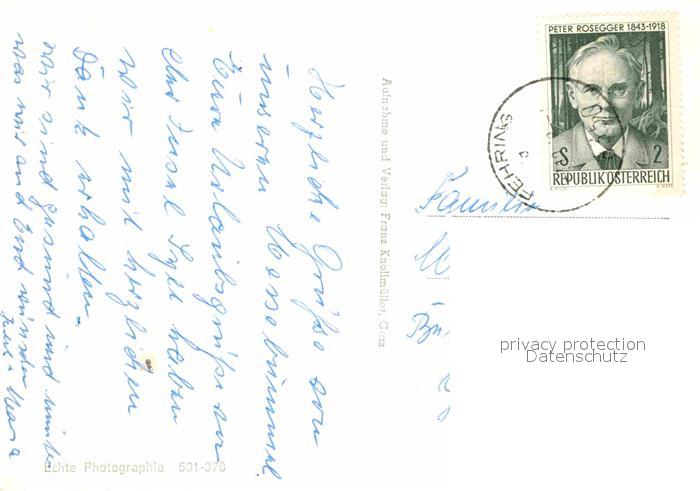 Herzliche Grüße von
unseren
Eure Urlaubsgrüße von
der Insel haben
wir mit herzlichen
Dank erhalten.
wir sind gesund und
was wir auch Euch wünschen
Aufnahme und Verlag: Franz Knollmüller, Graz
Echte Photographie 501-378
PETER ROSEGGER 1843-1918
S 2
REPUBLIK ÖSTERREICH
FEHRING
Familie
privacy protection
Datenschutz